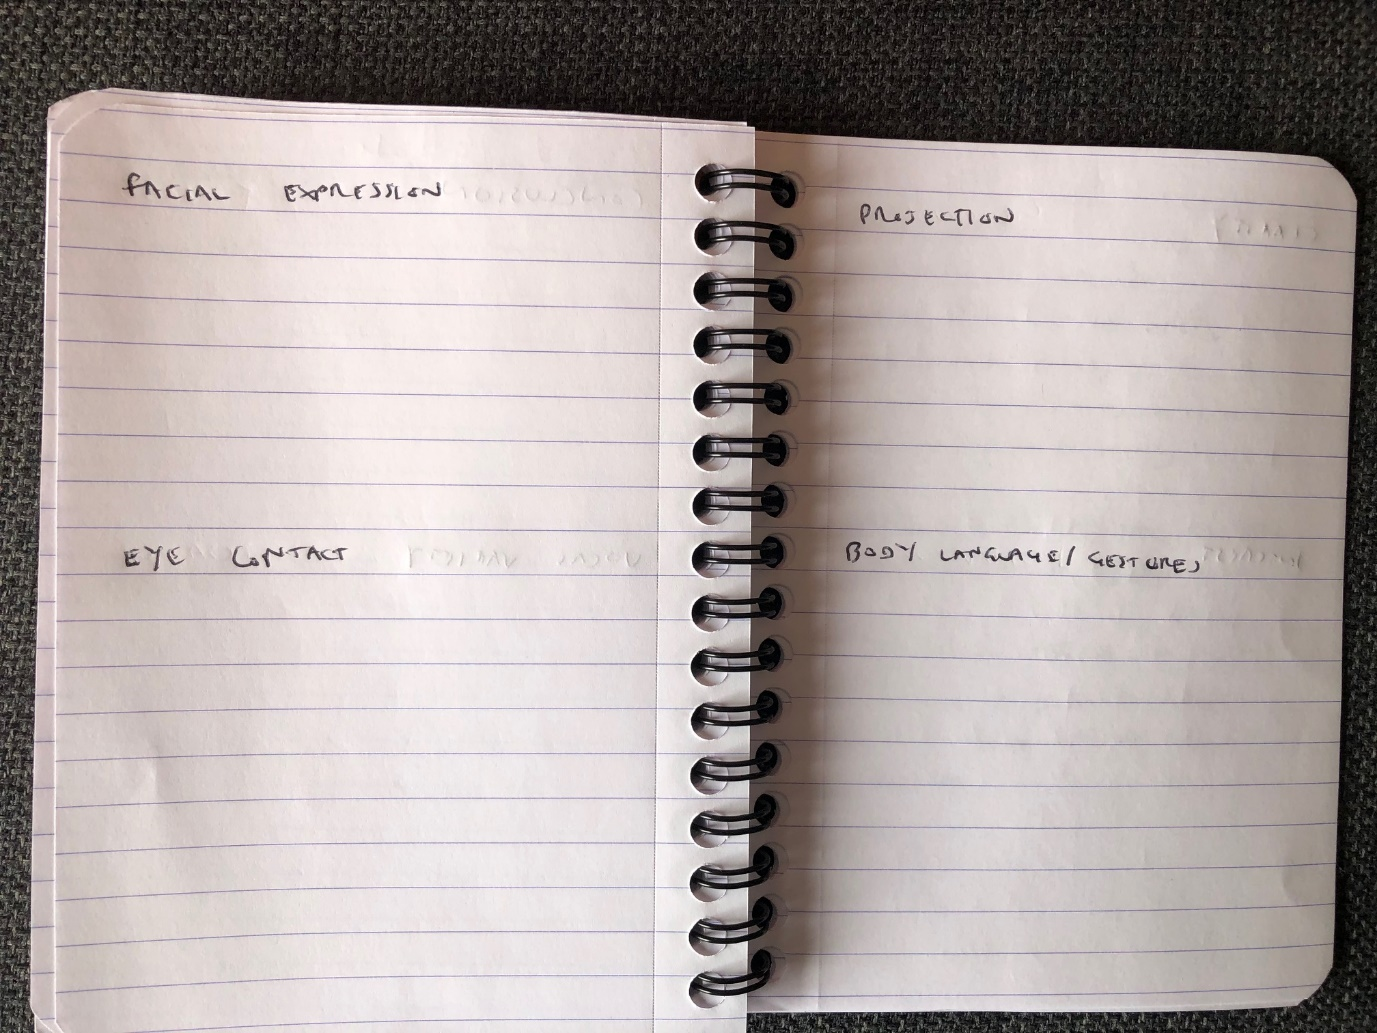 FACIAL EXPRESSION
EYE CONTACT
PROJECTION
BODY LANGUAGE/GESTURES